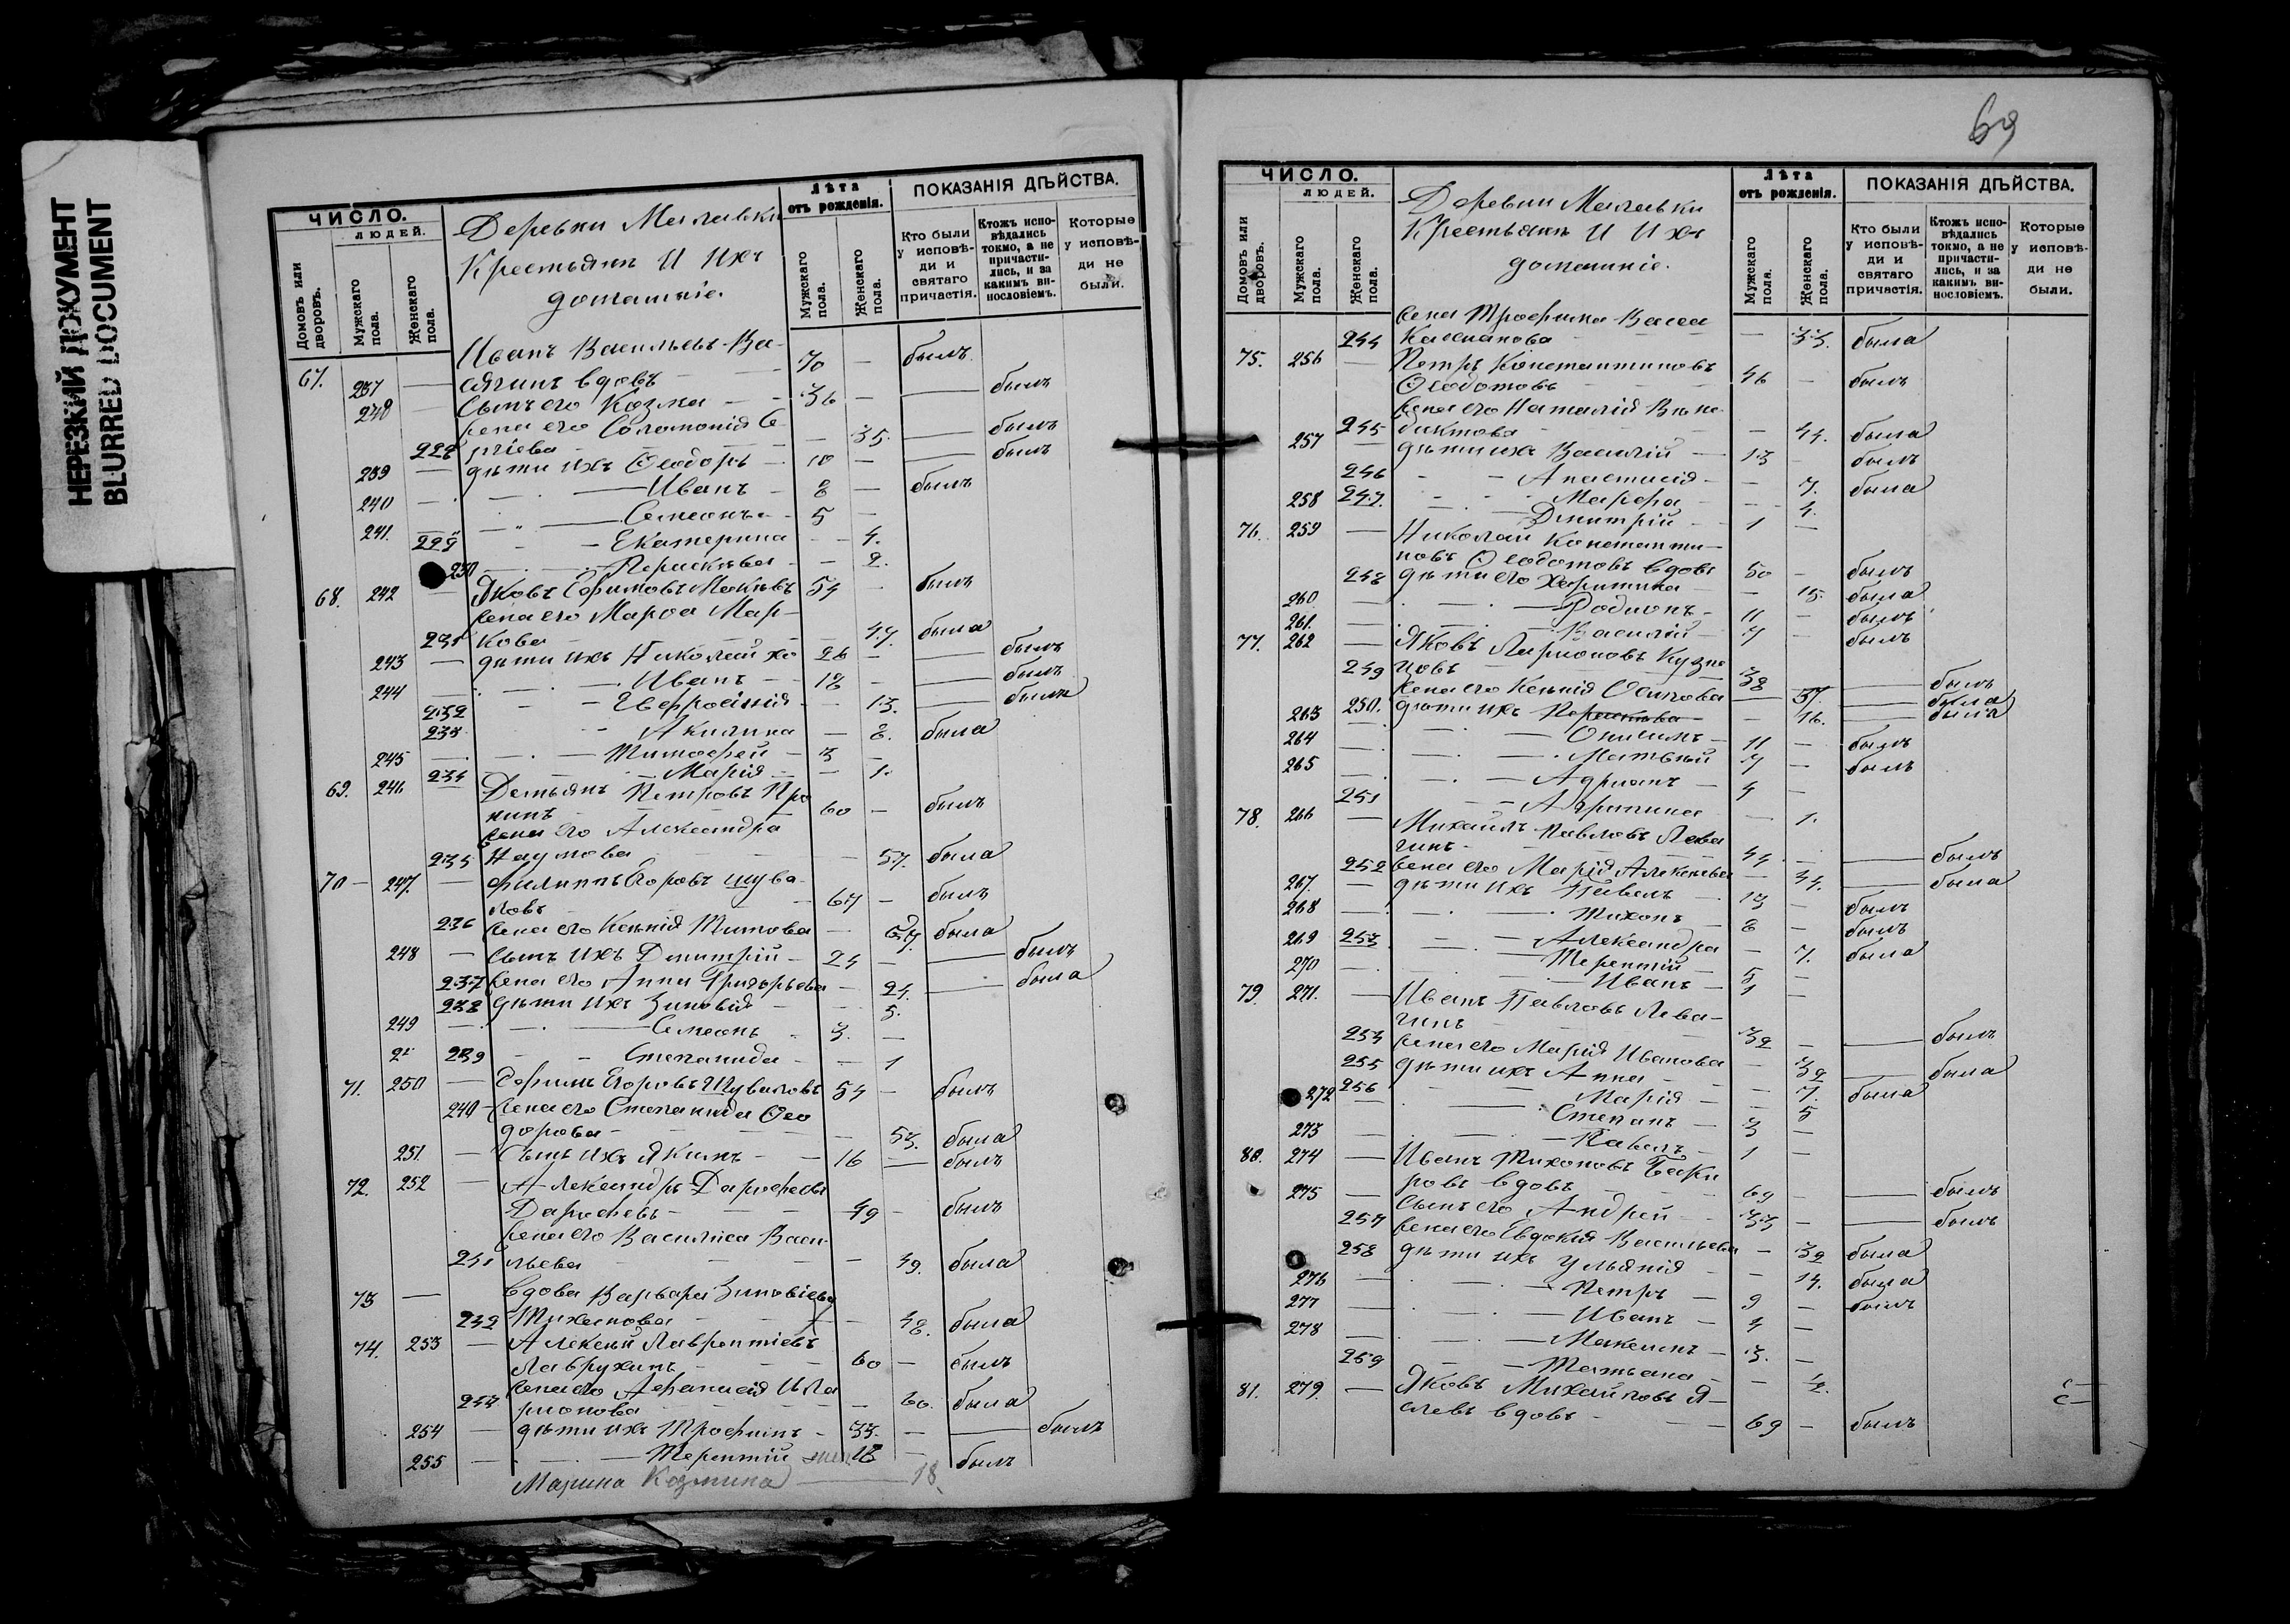 НЕРЕЗКИЙ ДОКУМЕНТ
BLURRED DOCUMENT
ЧИСЛО.
ЛЮДЕЙ.
Домовъ или дворовъ.
Мужскаго пола.
Женскаго пола.
Деревни
Крестьянъ и ихъ
домашніе.
Лѣта
отъ рожденія.
Мужскаго пола.
Женскаго пола.
ПОКАЗАНІЯ ДѢЙСТВА.
Кто были у исповѣди и святаго причастія.
Ктожъ исповѣдались токмо, а не причастились, и за какимъ винословіемъ.
Которые у исповѣди не были.
67. 237 — Иванъ Васильевъ
вдовъ 70 — былъ
238 — Сынъ его Козма 36 — — былъ
жена его Соломонія Се
228 ргіева — 35. — былъ
239 — дѣти ихъ Ѳеодоръ 10 — — былъ
240 — Иванъ 8 — былъ
241. — Симеонъ 5 —
229 Екатерина — 4.
230 Параскѣва — 2.
68. 242 — Яковъ Ефимовъ 54 былъ
жена его Марѳа Мар-
231 кова — 47. была
243 — дѣти ихъ Николай хо 26 — — былъ
244 — Иванъ 18 — — былъ
232 Евфросинія — 13. —
233 Акилина — 8. была
245 — Тимофей 3 —
234 Марія — 1.
69. 246 Демьянъ Петровъ Про
нинъ 60 — былъ
жена его Александра
235 Наумова — 57. была
70 — 247. — Филиппъ Егоровъ Шува-
ловъ 67 — былъ
236 жена его Ксенія Титова — была
248 — Сынъ ихъ Димитрій 24 — — былъ
237 жена его Анна Григорьева — 24. — была
238 дѣти ихъ Зиновія — 5.
249 — Симеонъ 3. —
239 Степанида — 1
71. 250 — Ефимъ Егоровъ Шуваловъ 54 — былъ
240 жена его Степанида Ѳео
дорова — 53. была
251. — Сынъ ихъ Якимъ 16 — былъ
72. 252 — Александръ Дорофеевъ
Дорофеевъ 49 — былъ
жена его Василиса Васи-
241 льева — 49. была
73 — Вдова Варвара Зиновіева
242 — 48. была
74. 253 — Алексѣй Лаврентіевъ
Лаврухинъ 60 — былъ
жена его Афанасія Ила
243 ріонова — 60. была
254 — дѣти ихъ Трофимъ 33. — — былъ
255 — Терентій 18 — былъ
Марина Козмина — 18.
69
ЧИСЛО.
ЛЮДЕЙ.
Домовъ или дворовъ.
Мужскаго пола.
Женскаго пола.
Деревни
Крестьянъ и ихъ
домашніе.
Лѣта
отъ рожденія.
Мужскаго пола.
Женскаго пола.
ПОКАЗАНІЯ ДѢЙСТВА.
Кто были у исповѣди и святаго причастія.
Ктожъ исповѣдались токмо, а не причастились, и за какимъ винословіемъ.
Которые у исповѣди не были.
жена Трофима Васса
244 Касьянова — 33. была
75. 256 — Петръ Константиновъ
Ѳеодотовъ 46 — былъ
жена его Наталія Вене-
245 диктова — 44. была
257 — дѣти ихъ Василій 13 — былъ
246 Анастасія — 7. была
247. Марфа — 4.
258 Димитрій 1 —
76. 259 — Николай Константи-
новъ Ѳеодотовъ вдовъ 50 — былъ
248 дѣти его Харитина — 15. была
260 — Родионъ 11 — былъ
261. — Василій 7 — былъ
77. 262 — Яковъ Ларионовъ Кузне
цовъ 38 — былъ
249 жена его Ксенія Осипова — 37. — была
250. дѣти ихъ Параскѣва — 16. — была
263 — Онисимъ 11 — былъ
264 — Матвѣй 7 — былъ
265 — Адріанъ 4 —
251 — 1.
78. 266 — Михаилъ Павловъ Лева
гинъ 44 — — былъ
252 жена его Марія Алексѣева — 44. — была
267. — дѣти ихъ Павелъ 13 — былъ
268 — Тихонъ 8 — былъ
253 Александра — 7. была
269 — Терентій 5 —
270 — Иванъ 1 —
79. 271. — Иванъ Павловъ Лева-
гинъ 32 — — былъ
254 жена его Марія Иванова — 32 — была
255 дѣти ихъ Анна — 7. была
256 Марія — 5
272 — Степанъ 3 —
273 — Павелъ 1 —
80. 274 — Иванъ Тихоновъ
вдовъ 69 — — былъ
275 — Сынъ его Андрей 33 — — былъ
257 жена его Евдокія Васильева — 32 была
258 дѣти ихъ Ульянія — 14. была
276 — Петръ 9 — былъ
277 — Иванъ 4 —
278 — Максимъ 3. —
259 Татьяна —
81. 279. — Яковъ Михайловъ
вдовъ 69 — былъ